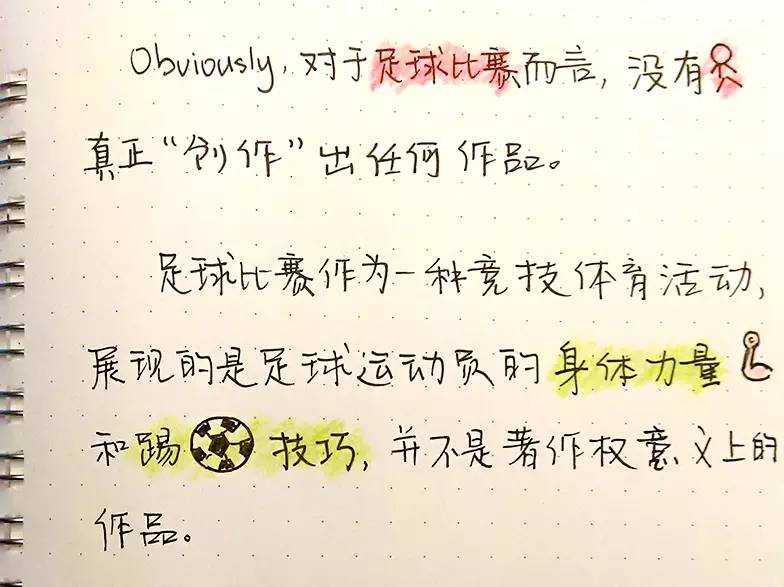 Obviously, 对于足球比赛而言, 没有
真正“创作”出任何作品。
足球比赛作为一种竞技体育活动,
展现的是足球运动员的身体力量
和踢技巧, 并不是著作权意义上的
作品。